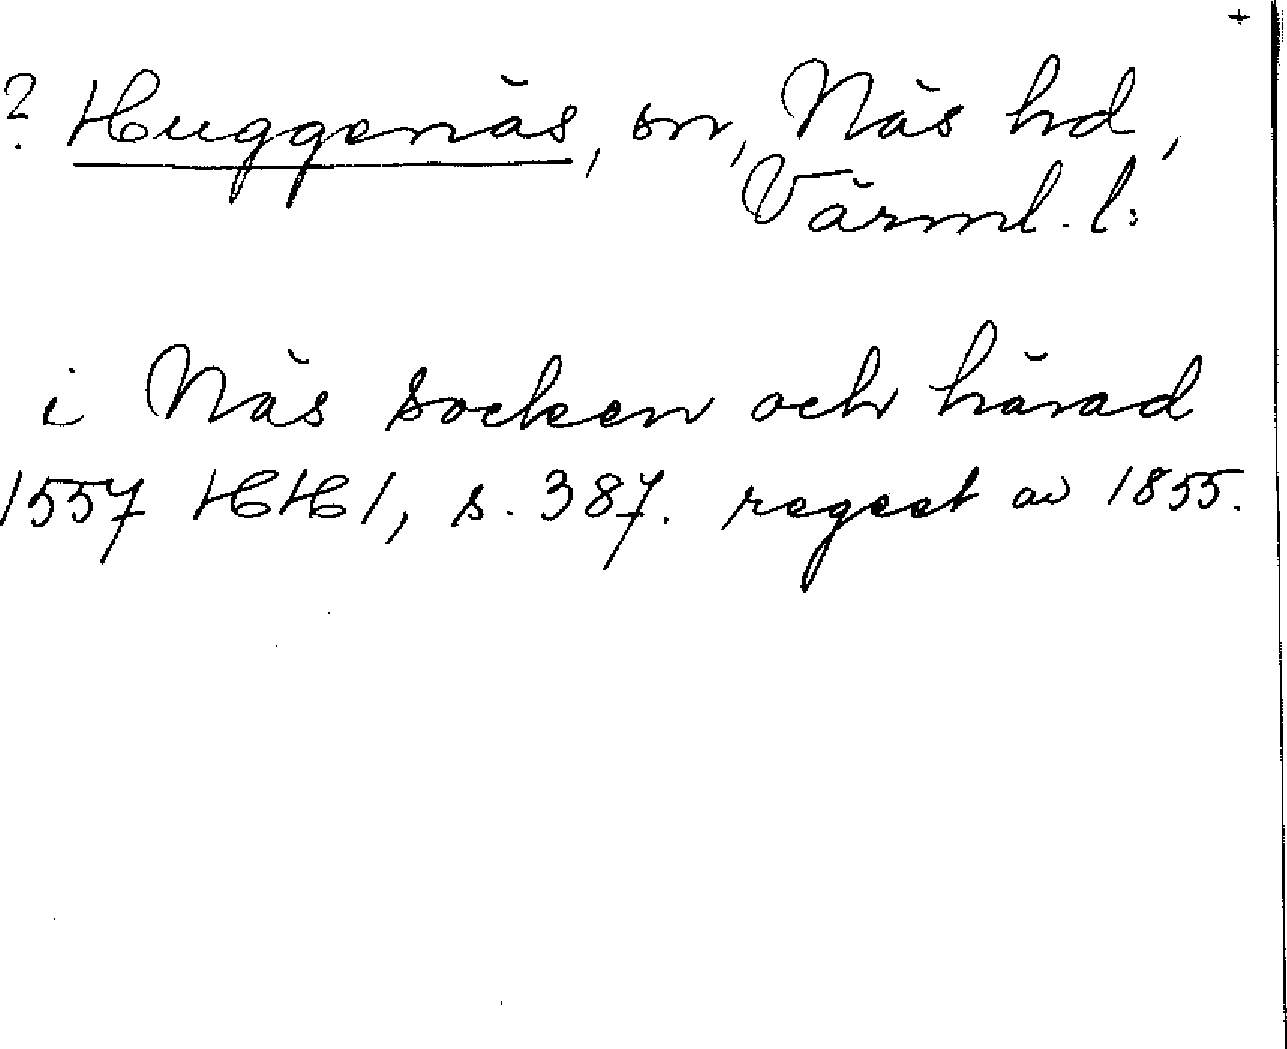 +
? Huggenäs, sn, Näs hd,
Värml. l:
i Näs socken och härad
1557 HH 1, s. 387. regest av 1855.